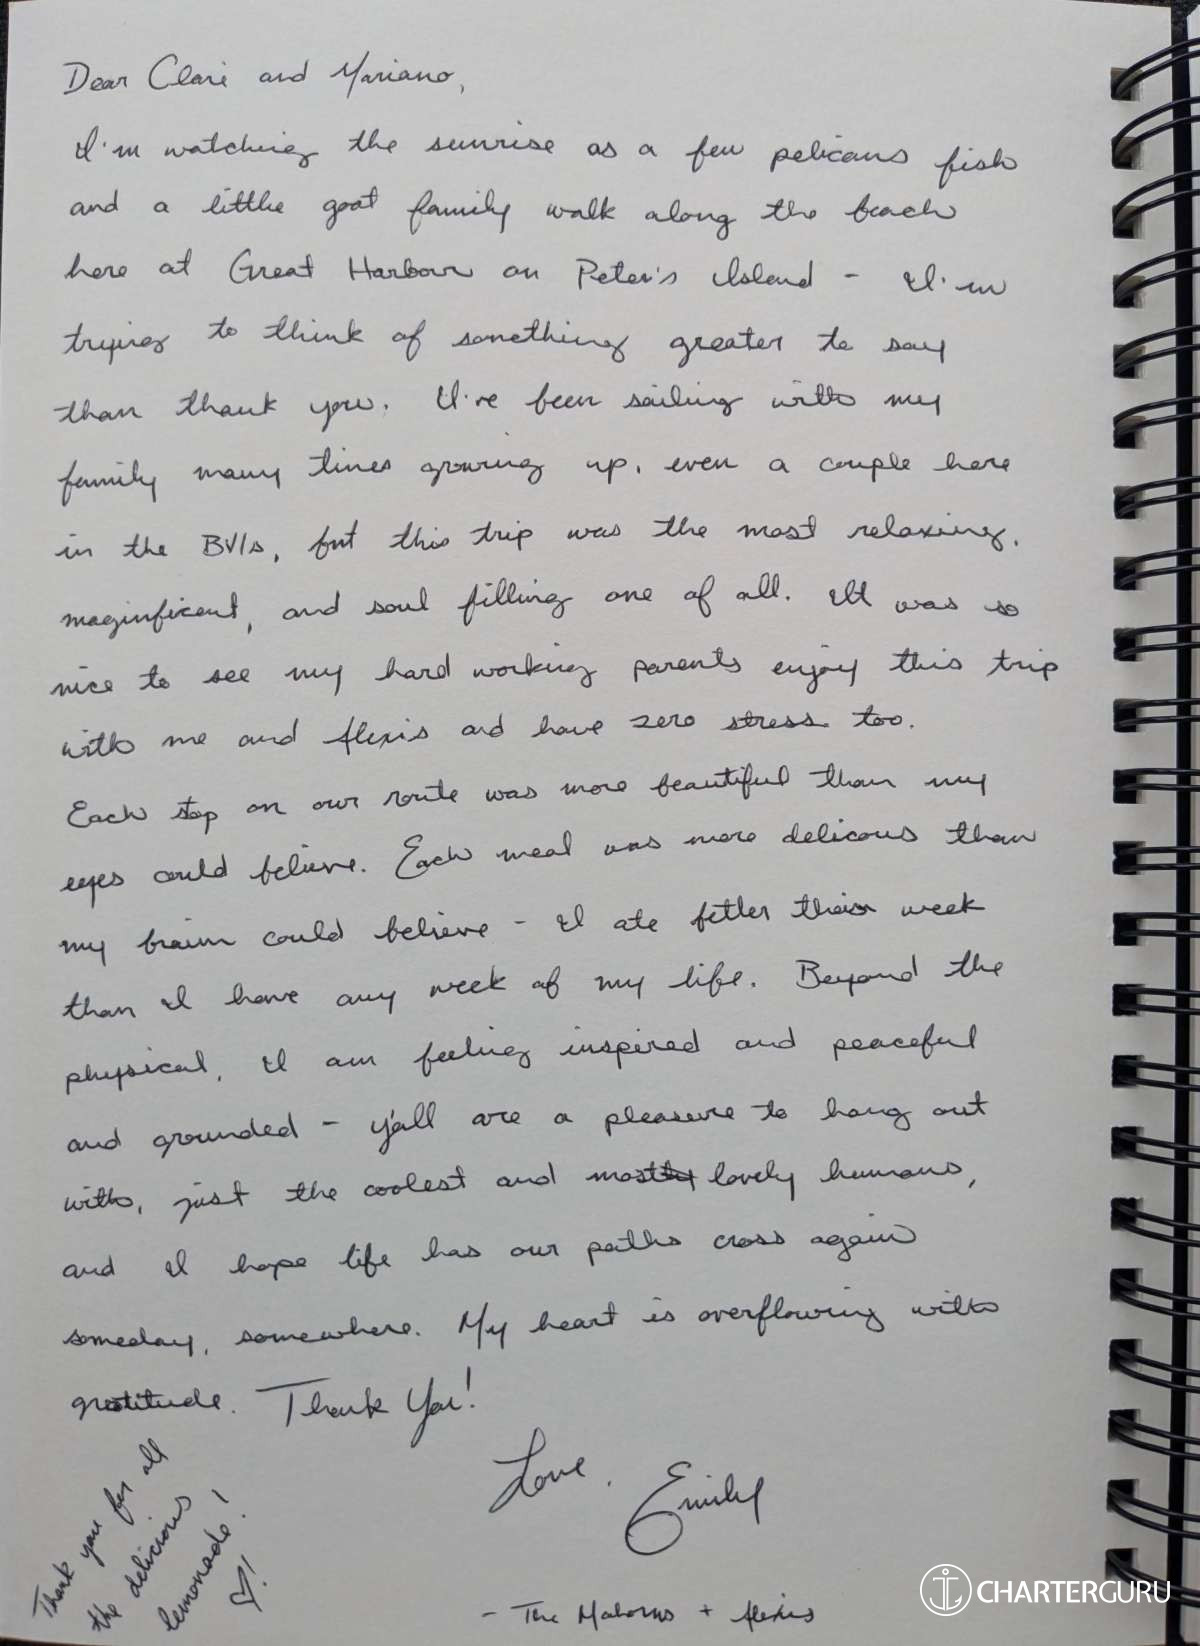 Dear Clare and Mariano,
I'm watching the sunrise as a few pelicans fish
and a little goat family walk along the beach
here at Great Harbour on Peter's Island - I'm
trying to think of something greater to say
than thank you. I've been sailing with my
family many times growing up, even a couple here
in the BVIs, but this trip was the most relaxing,
maginficent, and soul filling one of all. It was so
nice to see my hard working parents enjoy this trip
with me and Alexis and have zero stress too.
Each stop on our route was more beautiful than my
eyes could believe. Each meal was more delicous than
my brain could believe - I ate better this week
than I have any week of my life. Beyond the
physical, I am feeling inspired and peaceful
and grounded - y'all are a pleasure to hang out
with, just the coolest and most lovely humans,
and I hope life has our paths cross again
someday, somewhere. My heart is overflowing with
gratitude. Thank You!
Love, Emily
- The + Alexis
Thank you for all
the delicious
lemonade!
♡!
CHARTERGURU